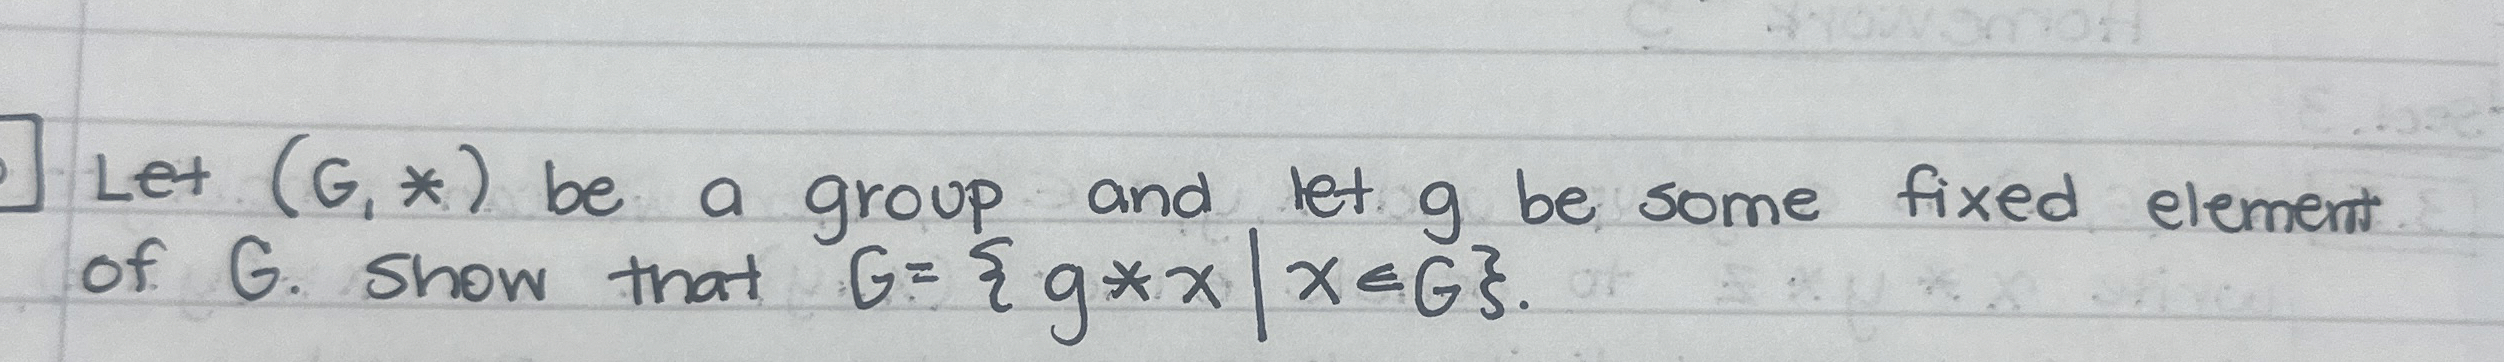 Let (G, *) be a group and let g be some fixed element
of G. Show that G = { g * x | x ∈ G }.